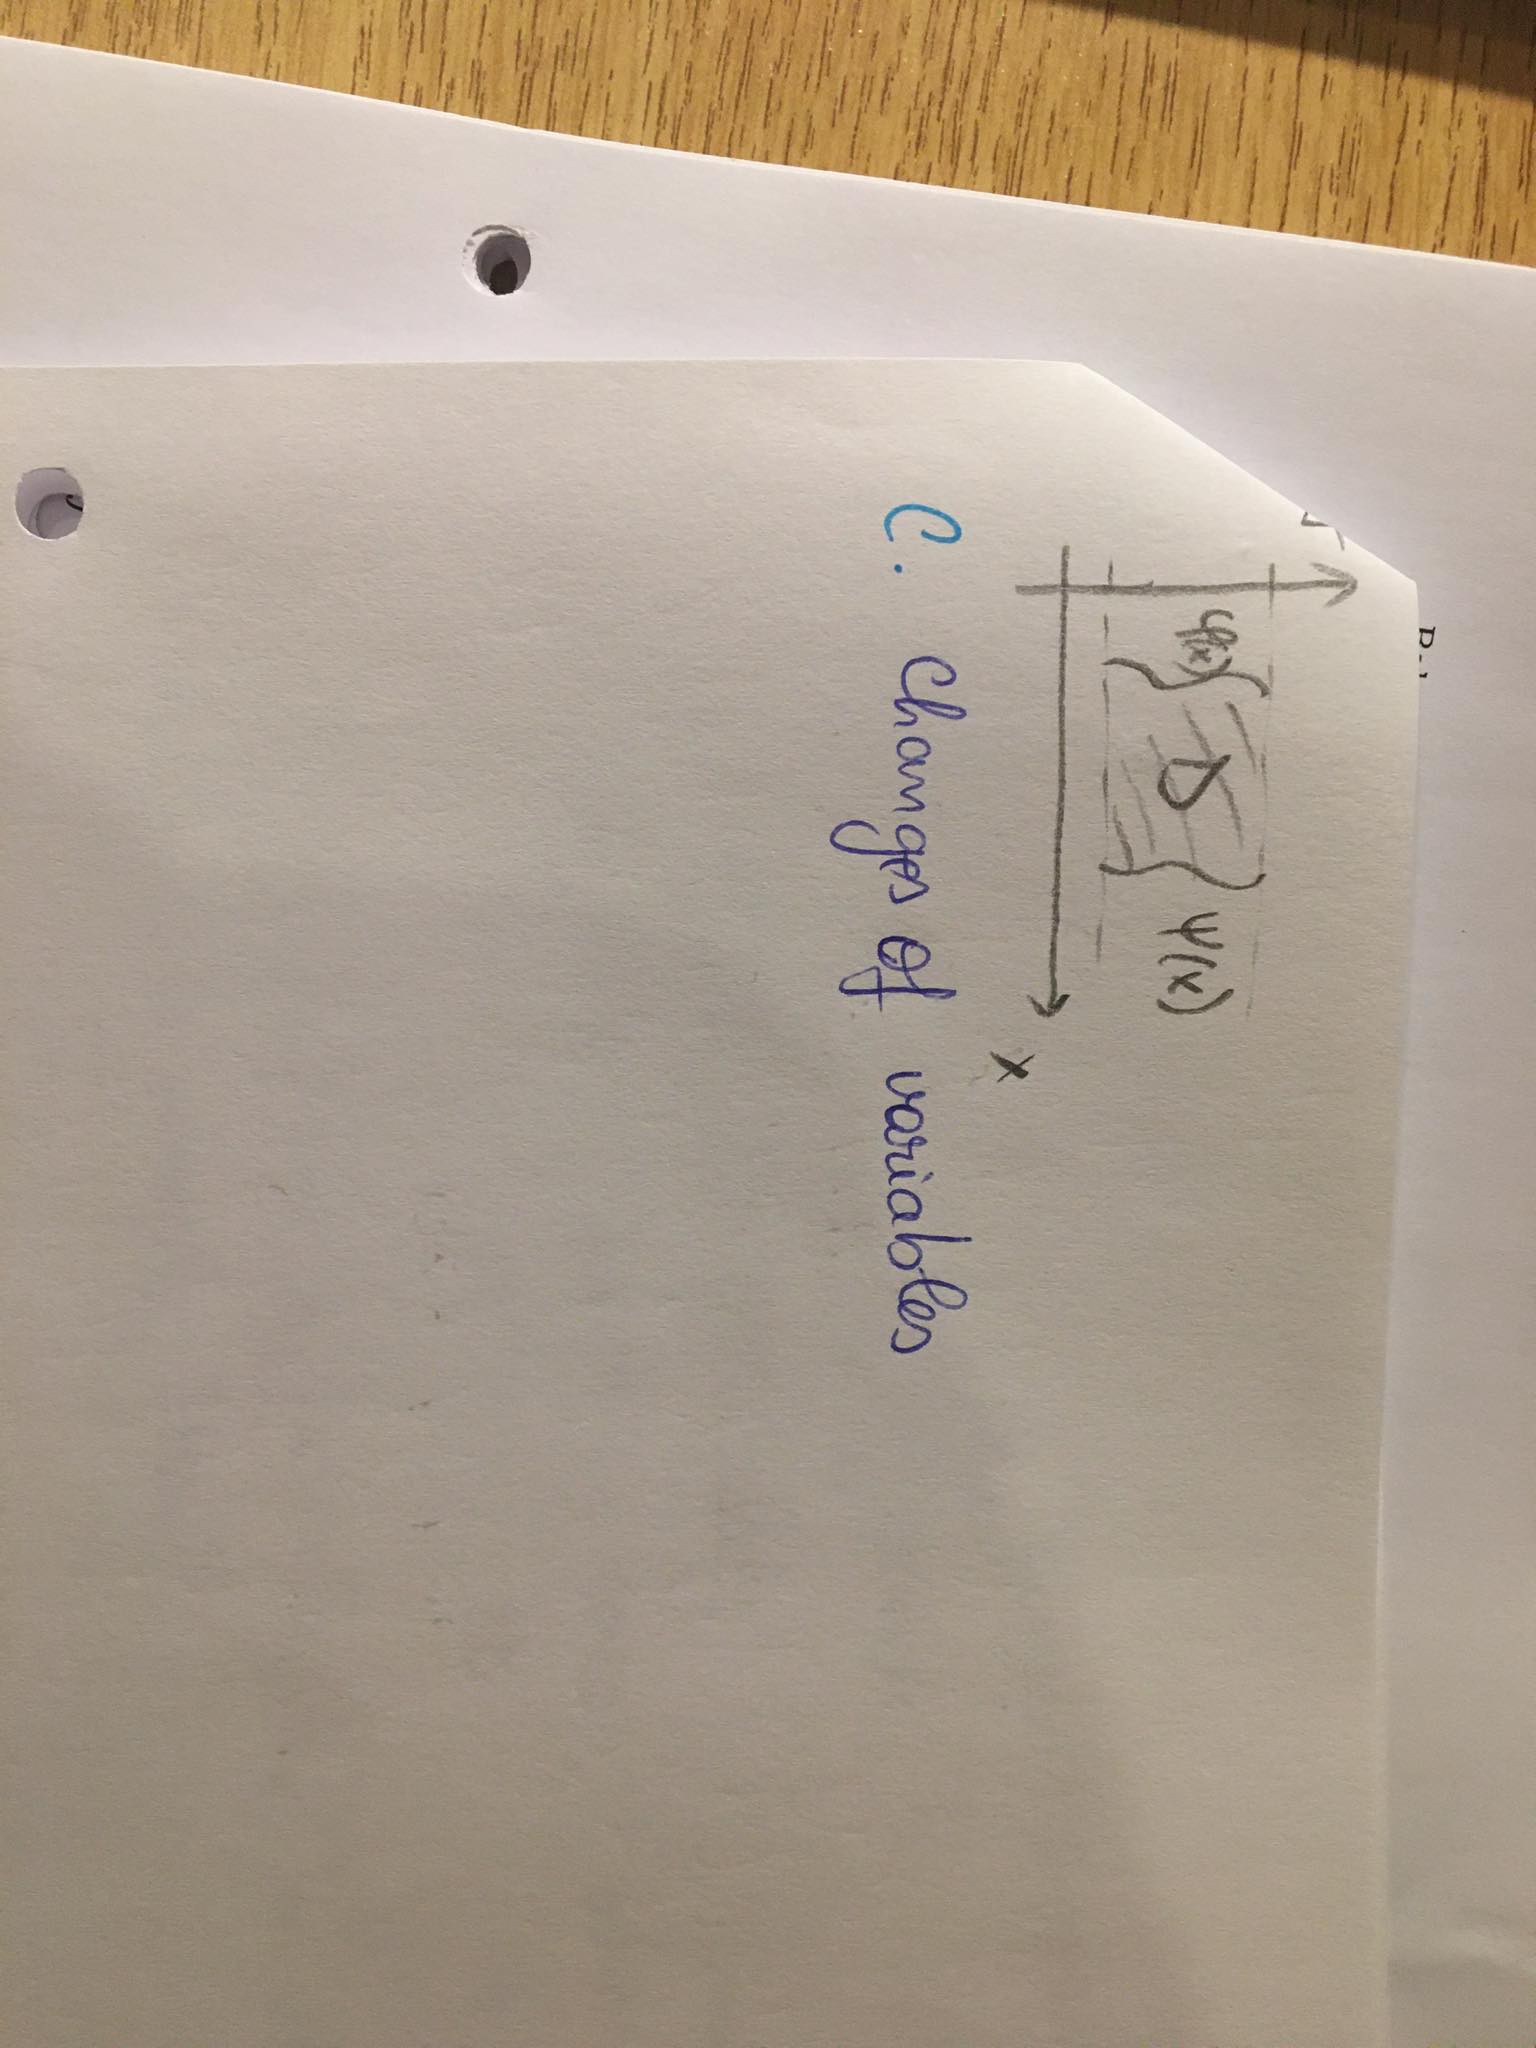 φ(x) D ψ(x)
x
C. Changes of variables